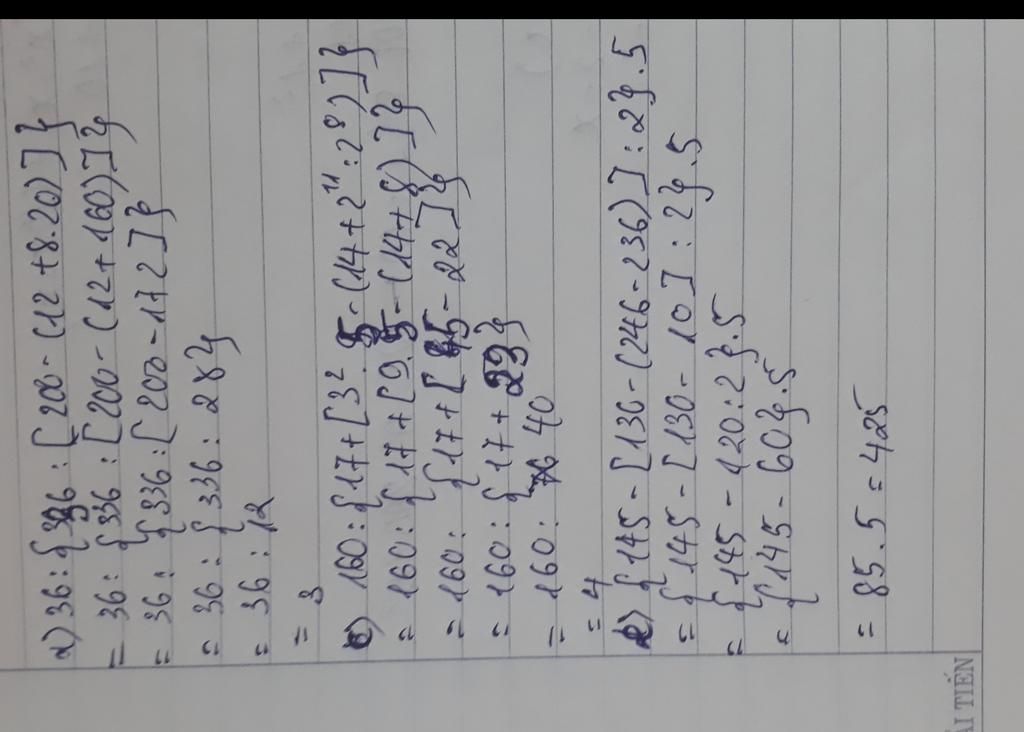 a) 36:{336:[200-(12+8.20)]}
= 36:{336:[200-(12+160)]}
= 36:{336:[200-172]}
= 36:{336:28}
= 36:12
= 3
c) 160:{17+[3².5-(14+2¹¹:2⁸)]}
= 160:{17+[9.5-(14+8)]}
= 160:{17+[45-22]}
= 160:{17+23}
= 160: 40
= 4
{145-[130-(246-236)]:2}.5
= {145-[130-10]:2}.5
= {145-120:2}.5
= {145-60}.5
= 85.5=425
ẢI TIẾN